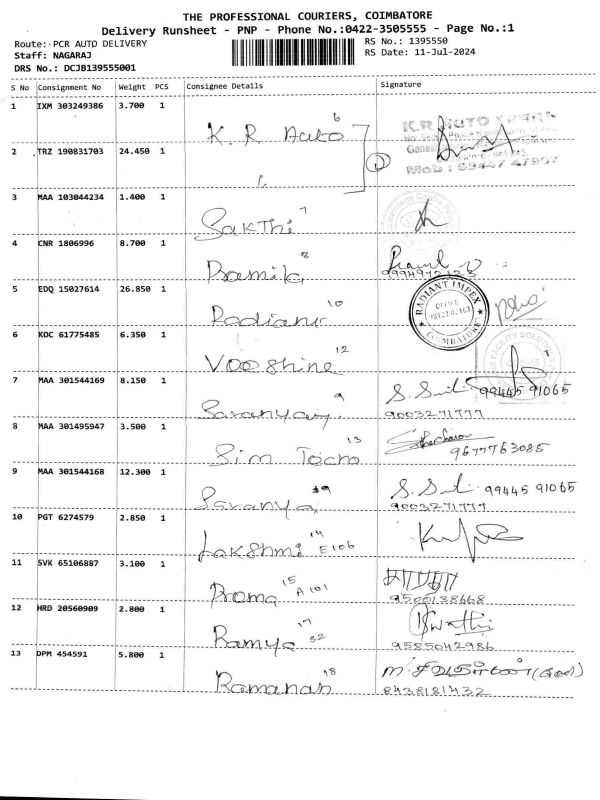 THE PROFESSIONAL COURIERS, COIMBATORE
Delivery Runsheet - PNP - Phone No.:0422-3505555 - Page No.:1
Route: PCR AUTO DELIVERY RS No.: 1395550
Staff: NAGARAJ RS Date: 11-Jul-2024
DRS No.: DCJB139555001
S No Consignment No Weight PCS Consignee Details Signature
1 IXM 303249386 3.700 1
K. R Auto 6 K.R AUTO
2 TRZ 190831703 24.450 1
1
3 MAA 103044234 1.400 1
Sakthi 7
4 CNR 1806996 8.700 1
Pramila
5 EDQ 15027614 26.850 1 RADIANT IMPEX
OFFICE
COIMBATORE
10
6 KOC 61775485 6.350 1
Vooshine 12
7 MAA 301544169 8.150 1
9 99445 91065
9003271777
8 MAA 301495947 3.500 1
Sim 13 9677763085
9 MAA 301544168 12.300 1
Saranya 9 99445 91065
9003271777
10 PGT 6274579 2.850 1
Lakshmi 14 E106
11 SVK 65106887 3.100 1
15 A 101 9500138668
12 HRD 20560909 2.800 1
Ramya 17 Swathi
9585042986
13 DPM 454591 5.800 1
Ramanan 18 8438181432